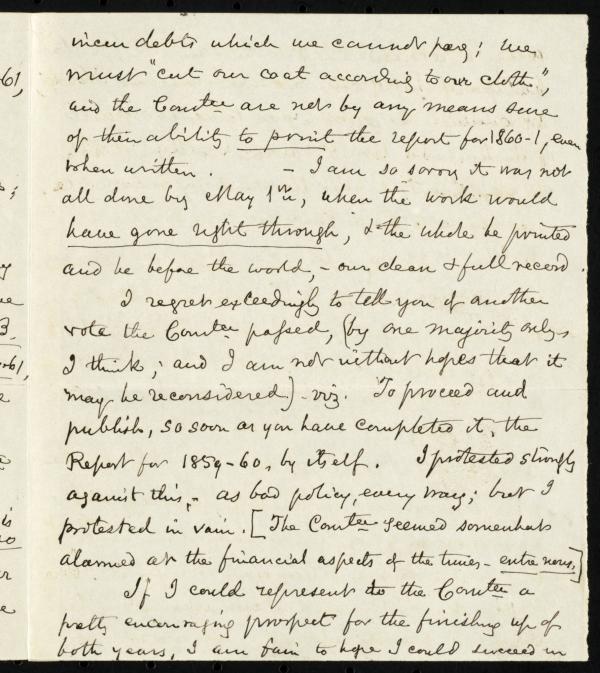 incur debts which we cannot pay; we
must "cut our coat according to our cloth",
and the Comtee are not by any means sure
of their ability to print the report for 1860-1, even
when written. - I am so sorry it was not
all done by May 1st, when the work would
have gone right through, & the whole be printed
and be before the world, - our clean & full record.
I regret exceedingly to tell you of another
vote the Comtee passed, (by one majority only,
I think; and I am not without hopes that it
may be reconsidered) - viz. To proceed and
publish, so soon as you have completed it, the
Report for 1859-60, by itself. I protested strongly
against this, - as bad policy, every way; but I
protested in vain. [The Comtee seemed somewhat
alarmed at the financial aspects of the times - entre nous.]
If I could represent to the Comtee a
pretty encouraging prospect for the finishing up of
both years, I am fain to hope I could succeed in
61,
;
y
ue
3.
-61,
e
a
is
no
ur
e